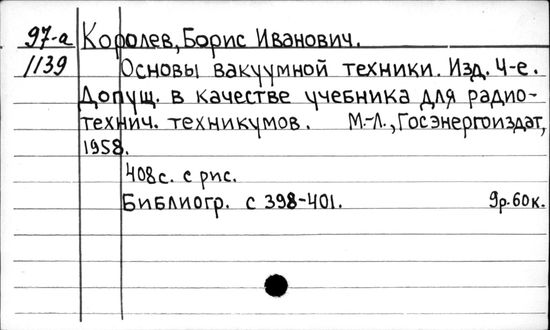 97-а Королев, Борис Иванович.
1139 Основы вакуумной техники. Изд. 4-е.
Допущ. в качестве учебника для радио-
технич. техникумов. М.-Л., Госэнергоиздат,
1958.
408с. с рис.
Библиогр. с 398-401. 9р.60к.